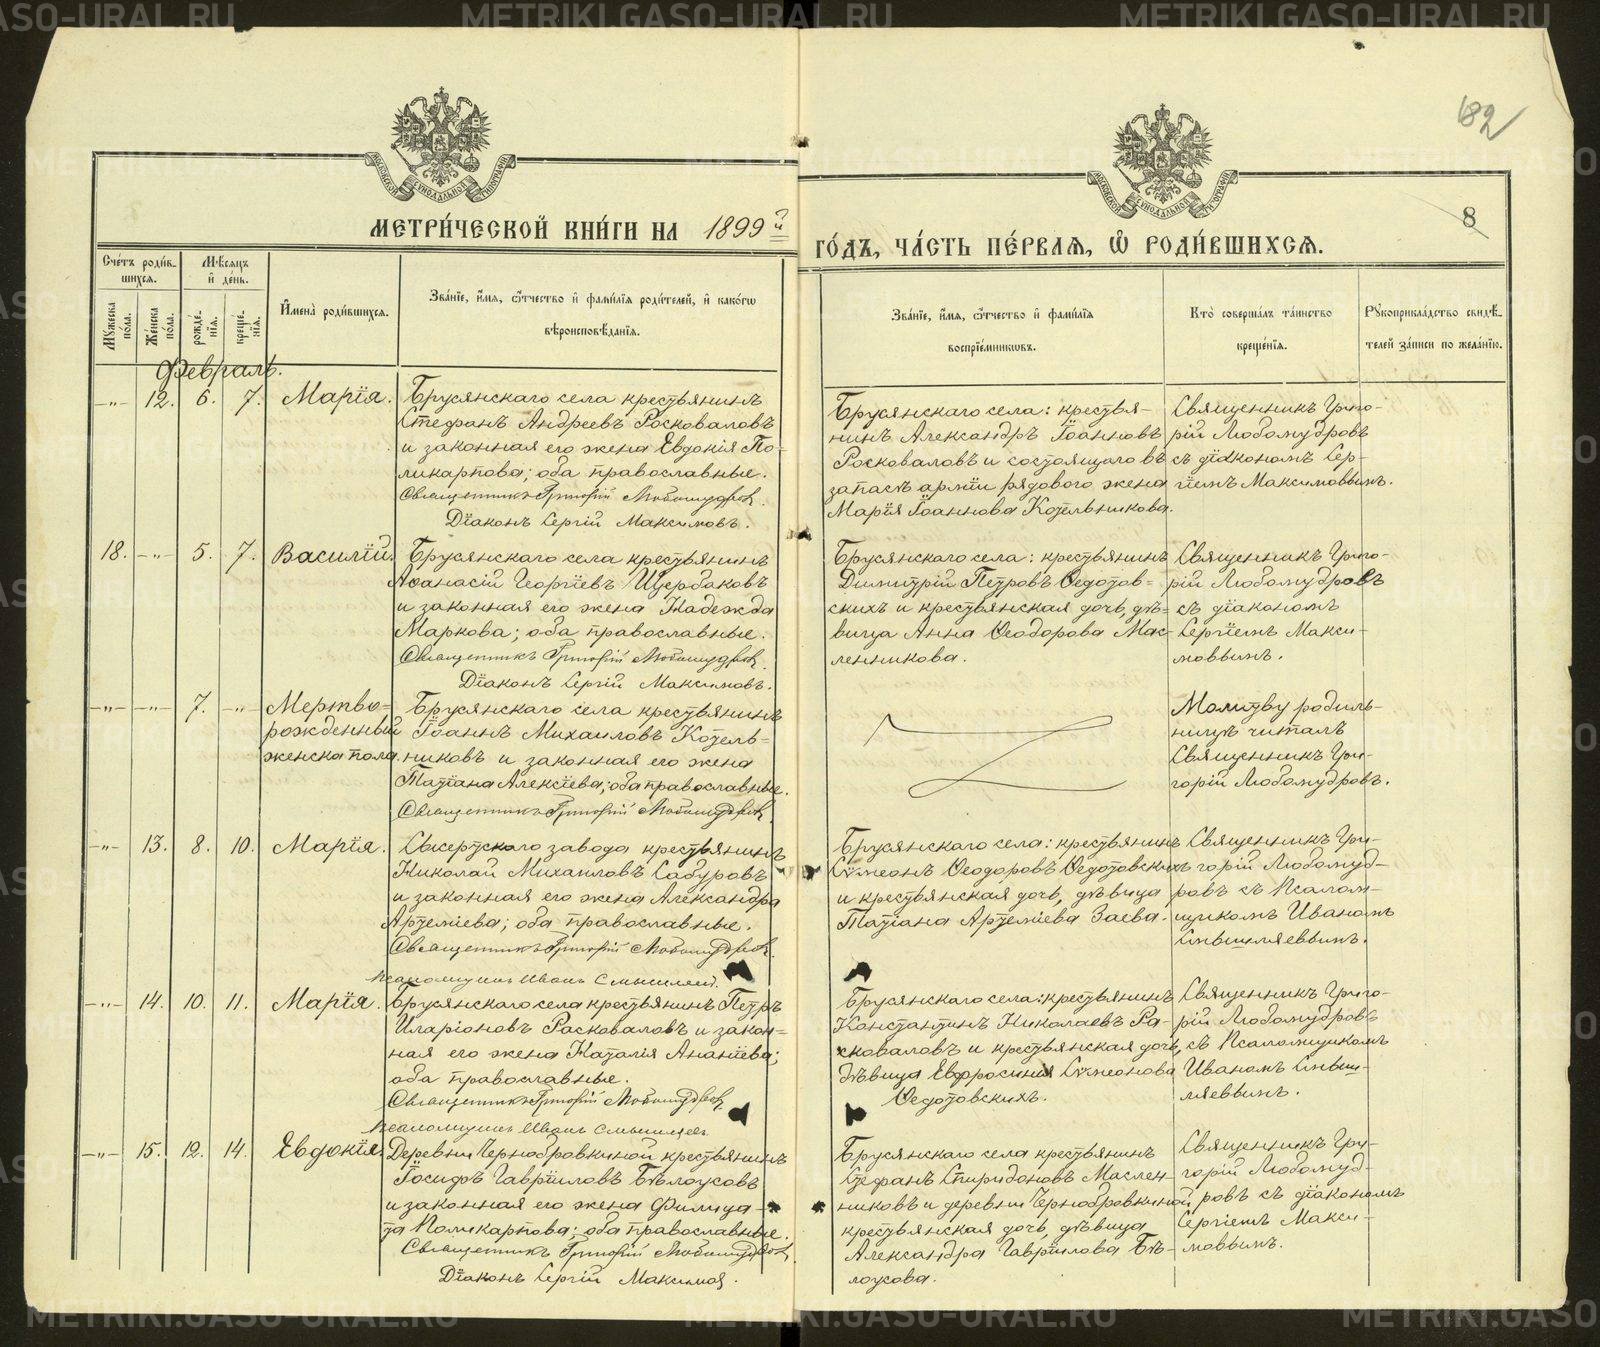 METRIKI.GASO-URAL.RU
82
8
МЕТРИ́ЧЕСКОЙ КНИ́ГИ НА 1899й
ГО́ДЪ, ЧА́СТЬ ПЕ́РВАЯ, Ѽ РОДИ́ВШИХСЯ.
Сче́тъ роди́в-
шихся.
Мѣ́сяцъ
и҆ де́нь.
Мꙋжеска по́ла.
Же́нска по́ла.
рожде́-
нїя.
креще́-
нїя.
И҆мена̀ роди́вшихся.
Зва́нїе, и҆́мя, ѻ҆́тчество и҆ фами́лїя роди́телей, и҆ како́гѡ
вѣроисповѣ́данїя.
Зва́нїе, и҆́мя, ѻ҆́тчество и҆ фами́лїя
воспрїе́мникѡвъ.
Кто̀ соверша́лъ та́инство
креще́нїя.
Рꙋкоприкла́дство свидѣ́-
телей за́писи по жела́нїю.
Февраль.
-"- 12. 6. 7. Марїя.
Брусянскаго села крестьянинъ
Стефанъ Андреевъ Росковаловъ
и законная его жена Евдокія По-
ликарпова; оба православные.
Священникъ Григорій Любомудровъ.
Дїаконъ Сергій Максимовъ.
Брусянскаго села: крестья-
нинъ Александръ Іоанновъ
Росковаловъ и состоящаго въ
запасѣ арміи рядового жена
Марїя Іоаннова Котельникова.
Священникъ Григо-
рій Любомудровъ
съ дїакономъ Сер-
гіемъ Максимовымъ.
18. -"- 5. 7. Василїй.
Брусянскаго села крестьянинъ
Аѳанасій Георгіевъ Щербаковъ
и законная его жена Надежда
Маркова; оба православные.
Священникъ Григорій Любомудровъ.
Дїаконъ Сергій Максимовъ.
Брусянскаго села: крестьянинъ
Димитрій Петровъ Ѳедотов-
скихъ и крестьянская дочь, дѣ-
вица Анна Ѳеодорова Мас-
ленникова.
Священникъ Григо-
рій Любомудровъ
съ дїакономъ
Сергіемъ Макси-
мовымъ.
-"- -"- 7. -"- Мертво-
рожденный
женска пола.
Брусянскаго села крестьянинъ
Іоаннъ Михаиловъ Котель-
никовъ и законная его жена
Татїана Алексїева; оба православные.
Священникъ Григорій Любомудровъ.
Молитву родиль-
ницѣ читалъ
Священникъ Гри-
горій Любомудровъ.
-"- 13. 8. 10. Марїя.
Сысертскаго завода крестьянинъ
Николай Михаиловъ Сабуровъ
и законная его жена Александра
Артемїева; оба православные.
Священникъ Григорій Любомудровъ.
Псаломщикъ Иванъ Смышляевъ.
Брусянскаго села: крестьянинъ
Сѵмеонъ Ѳеодоровъ Ѳедотовскихъ
и крестьянская дочь, дѣвица
Татїана Артемїева Заева.
Священникъ Гри-
горій Любомуд-
ровъ съ Псалом-
щикомъ Иваномъ
Смышляевымъ.
-"- 14. 10. 11. Марїя.
Брусянскаго села крестьянинъ Петръ
Иларіоновъ Расковаловъ и закон-
ная его жена Наталїя Ананїева;
оба православные.
Священникъ Григорій Любомудровъ
Псаломщикъ Иванъ Смышляевъ.
Брусянскаго села: крестьянинъ
Константинъ Николаевъ Ра-
сковаловъ и крестьянская дочь,
дѣвица Евфросинія Сѵмеонова
Ѳедотовскихъ.
Священникъ Григо-
рій Любомудровъ
съ Псаломщикомъ
Иваномъ Смыш-
ляевымъ.
-"- 15. 12. 14. Евдокїя.
Деревни Чернобровкиной крестьянинъ
Іосифъ Гаврїиловъ Бѣлоусовъ
и законная его жена Филица-
та Поликарпова; оба православные.
Священникъ Григорій Любомудровъ.
Дїаконъ Сергій Максимовъ.
Брусянскаго села крестьянинъ
Стефанъ Спиридоновъ Маслен-
никовъ и деревни Чернобровкиной
крестьянская дочь, дѣвица
Александра Гаврїилова Бѣ-
лоусова.
Священникъ Гри-
горій Любомуд-
ровъ съ дїакономъ
Сергіемъ Макси-
мовымъ.